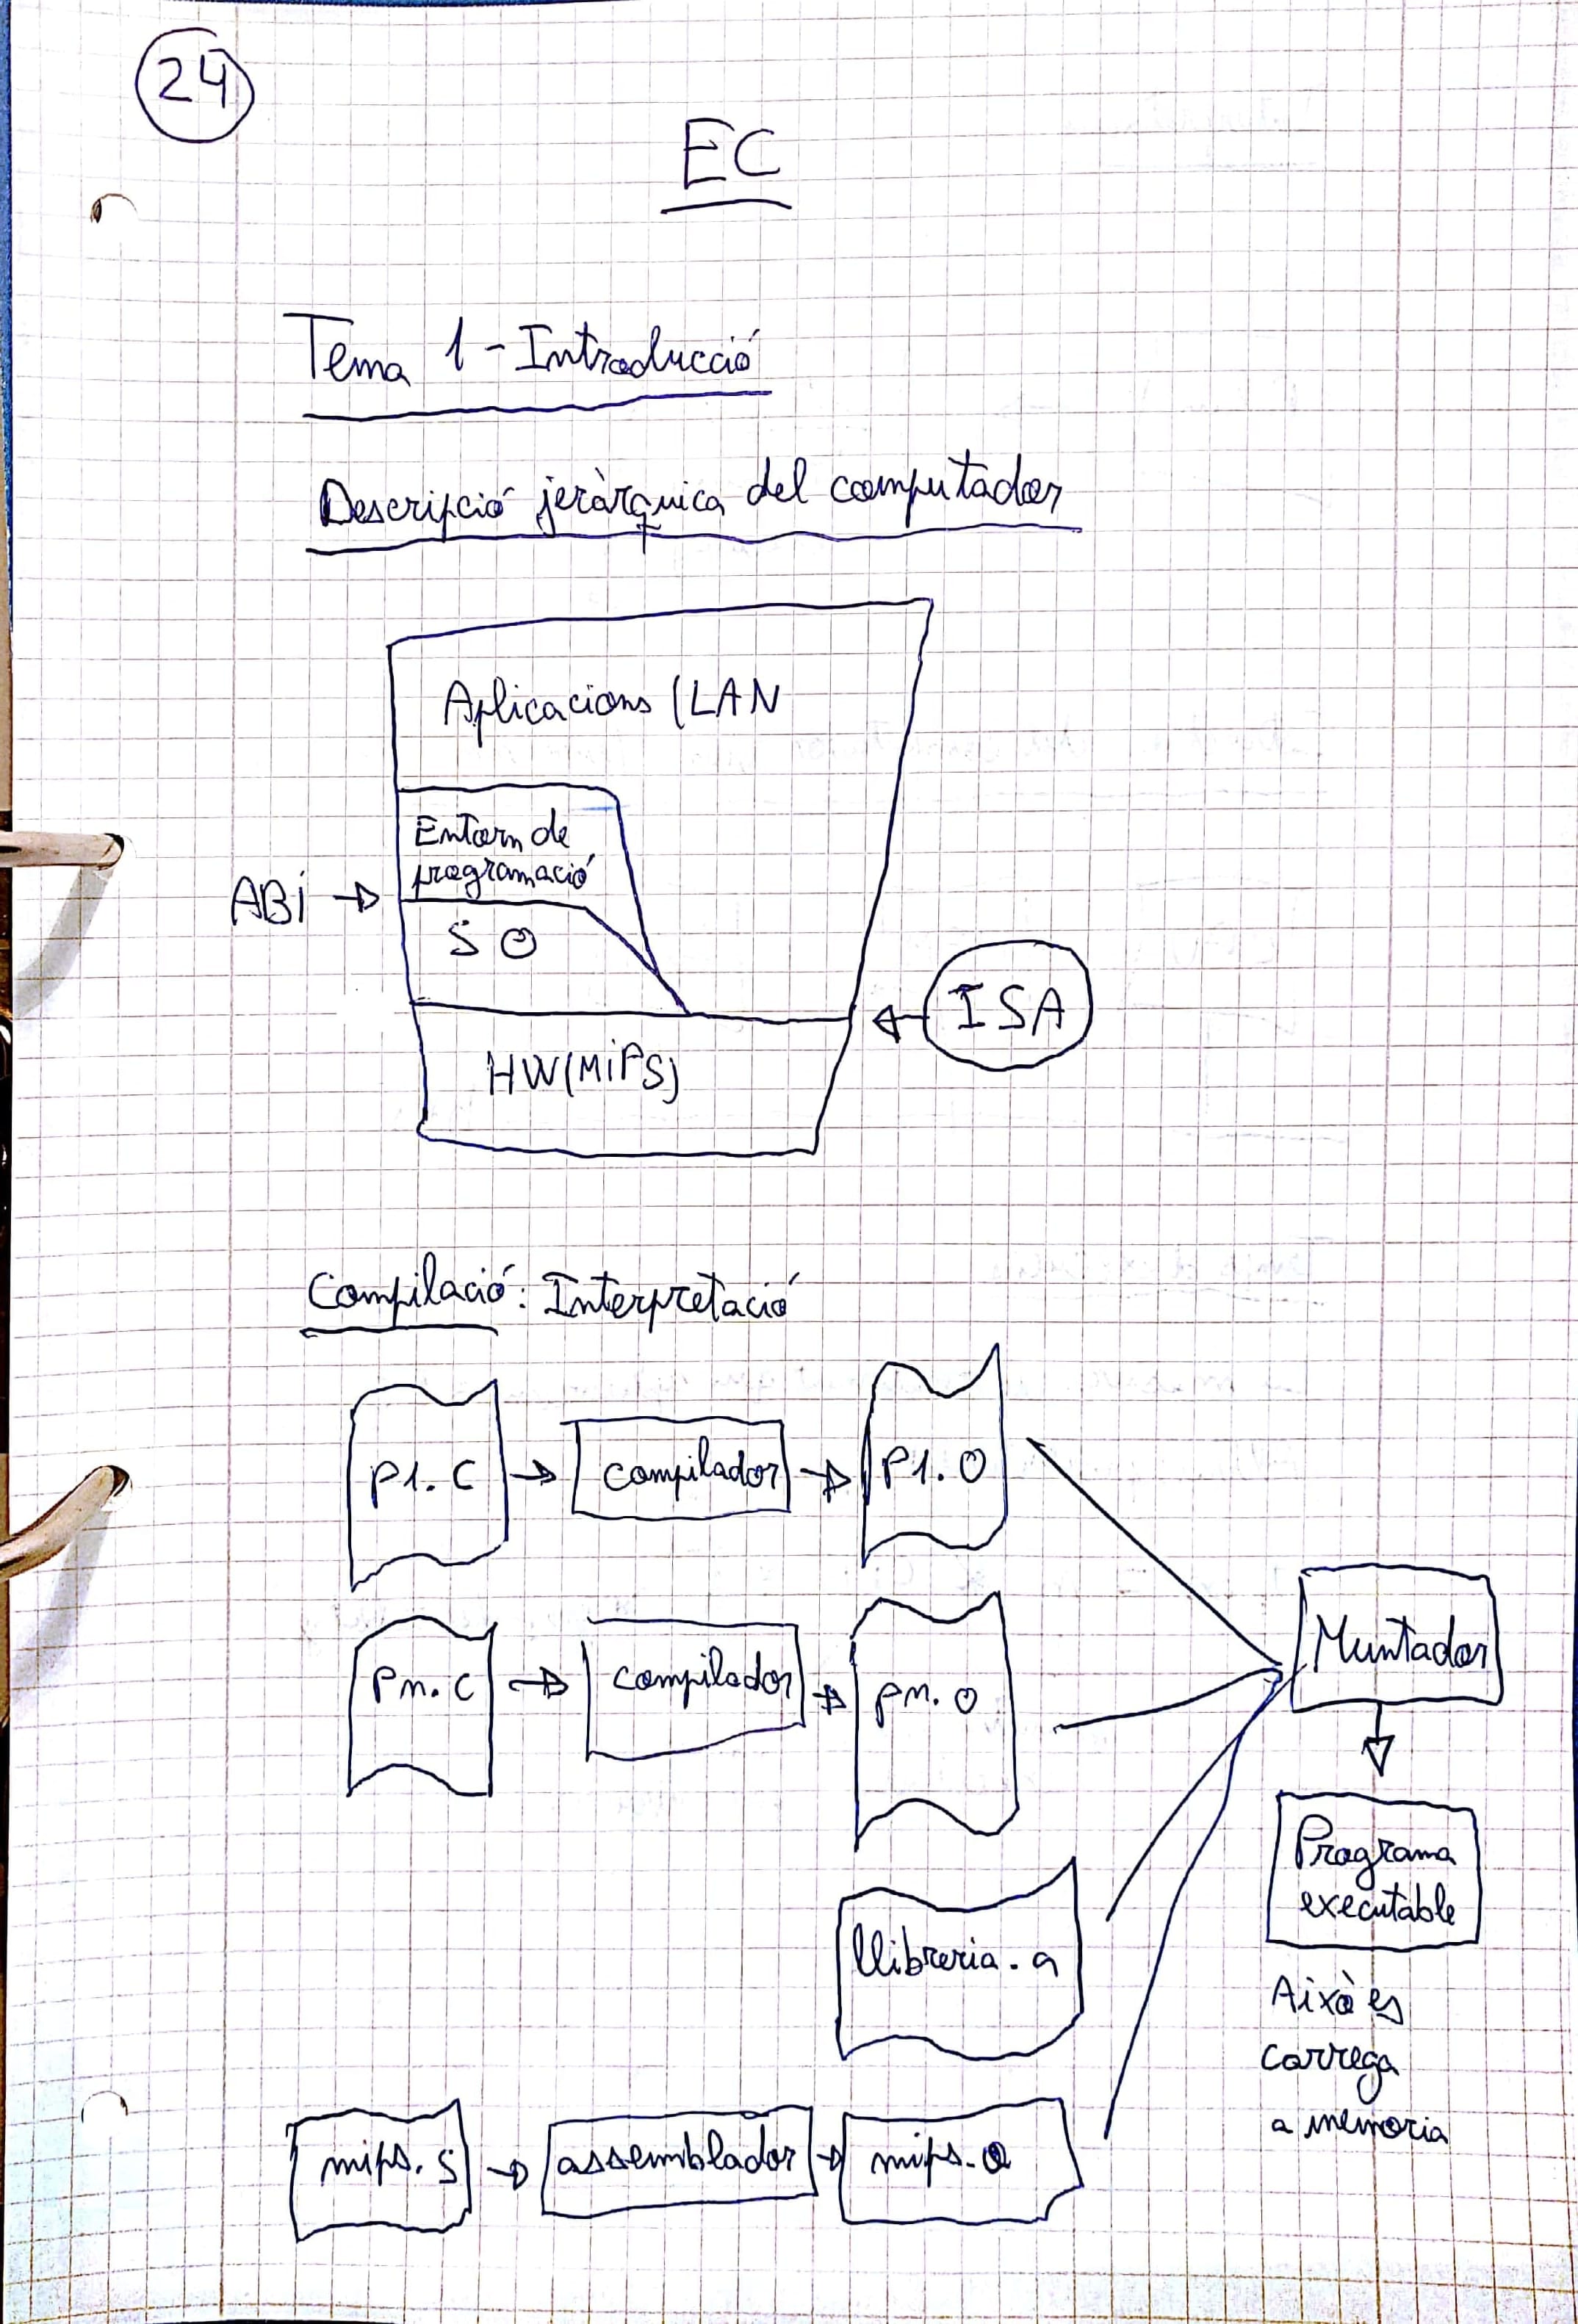 24
EC
Tema 1 - Introducció
Descripció jeràrquica del computador
Aplicacions (LAN
Entorn de
programació
ABI →
SO
← ISA
HW(MIPS)
Compilació: Interpretació
P1.C → compilador → P1.O
Pn.C → compilador → Pn.O
Muntador
Programa
executable
llibreria.a
Això es
carrega
a memoria
mips.s → assemblador → mips.o